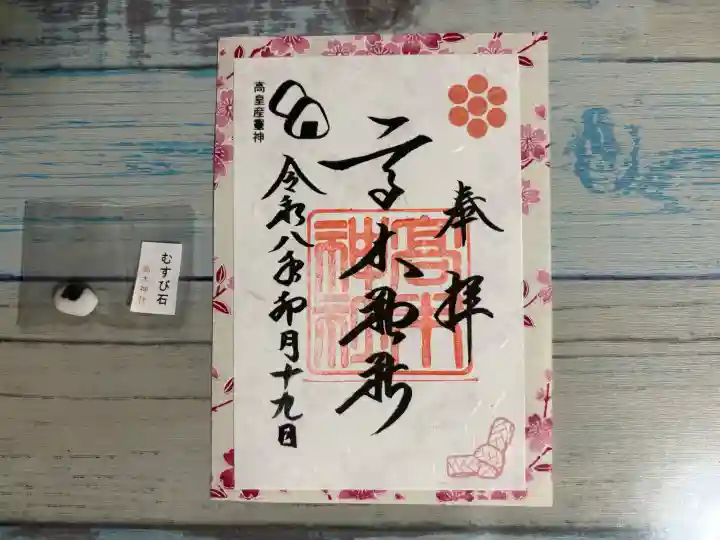 奉拝
高木神社
高木神社
高皇産靈神
令和八年卯月十九日
むすび石
高木神社